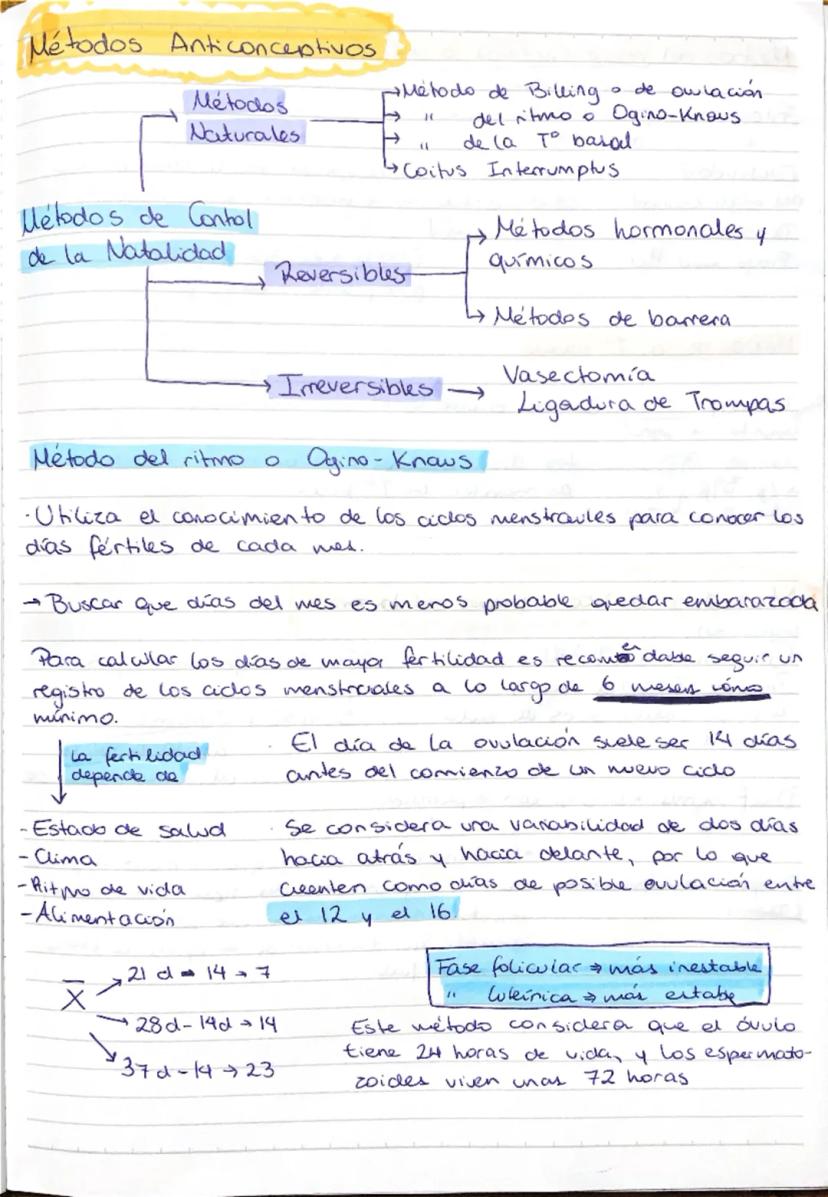 Métodos Anticonceptivos
Métodos
Naturales
→ Método de Billing o de ovulación
→ " del ritmo o Ogino-Knaus
→ " de la Tº basal
→ Coitus Interrumptus
Métodos de Contol
de la Natalidad
→ Reversibles
→ Métodos hormonales y
químicos
→ Métodos de barrera
→ Irreversibles →
Vasectomía
Ligadura de Trompas
Método del ritmo o Ogino-Knaus
· Utiliza el conocimiento de los ciclos menstraules para conocer los
días fértiles de cada mes.
→ Buscar que días del mes es menos probable quedar embarazada
Para calcular los días de mayor fertilidad es recomendable seguir un
registro de los ciclos menstruales a lo largo de 6 meses cómo
mínimo.
La fertilidad
depende de
- Estado de salud
- Clima
- Ritmo de vida
- Alimentación
· El día de la ovulación suele ser 14 días
antes del comienzo de un nuevo ciclo
· Se considera una variabilidad de dos días
hacia atrás y hacia delante, por lo que
cuenten como días de posible ovulación entre
el 12 y el 16.
X̄
→ 21 d - 14 → 7
→ 28d - 14d → 14
→ 37 d - 14 → 23
Fase folicular → más inestable
" luteínica → más estabe
Este método considera que el óvulo
tiene 24 horas de vida, y los espermato-
zoides viven unas 72 horas